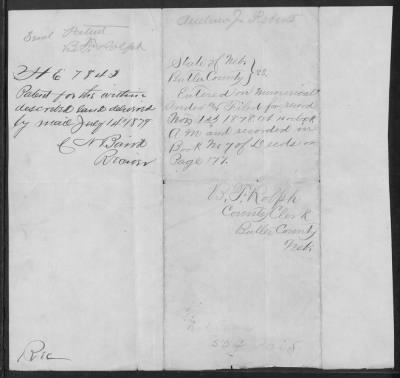 Send Patent
B. F. Rolph
H E 7842
Patent for the within
described land delivered
by mail July 14th 1879
C N Baird
Receiver
Rec
State of Neb
Butler County } SS.
Entered on Numerical
Index & Filed for record
A M and recorded in
Book No 7 of Deeds on
Page 177.
B. F. Rolph
County Clerk
Butler County
Neb